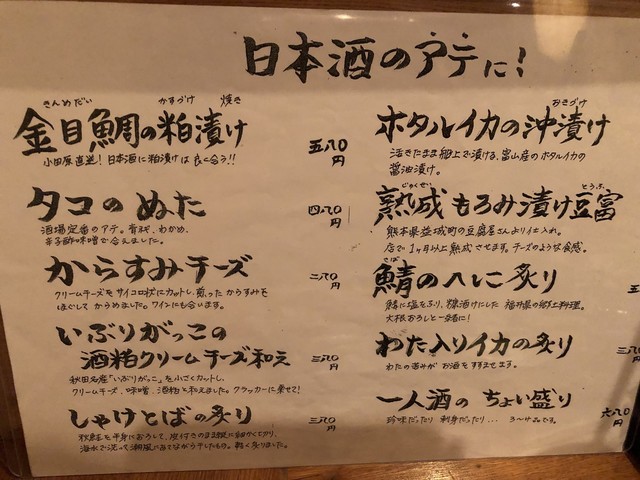 日本酒のアテに!
きんめだい かすづけ 焼き
金目鯛の粕漬け
小田原直送!日本酒に粕漬けは良く合う!!
五八〇円
タコのぬた
酒場定番のアテ。青ネギ、わかめ、
辛子酢味噌で合えました。
四八〇円
からすみチーズ
クリームチーズをサイコロ状にカットし、煎ったからすみを
ほぐしてからめました。ワインにも合います。
二八〇円
いぶりがっこの
酒粕クリームチーズ和え
秋田名産「いぶりがっこ」を小さくカットし、
クリームチーズ、味噌、酒粕と和えました。クラッカーに乗せて!
三八〇円
しゃけとばの炙り
秋鮭を半身におろして、皮付きのまま縦に細かく切り、
海水で洗って潮風に当てながら干したもの。軽く炙りました。
三八〇円
おきづけ
ホタルイカの沖漬け
活きたまま船上で漬ける、富山産のホタルイカの
醤油漬け。
じゅくせい とうふ
熟成もろみ漬け豆富
熊本県益城町の豆腐屋さんより仕入れ。
店で1ヶ月以上熟成させます。チーズのような食感。
さば
鯖のへしこ炙り
鯖に塩をふり、糠漬けにした福井県の郷土料理。
大根おろしと一緒に!
わた入りイカの炙り
わたの苦みがお酒をすすませます。
三八〇
一人酒のちょい盛り
珍味だったり 刺身だったり...
六八〇円